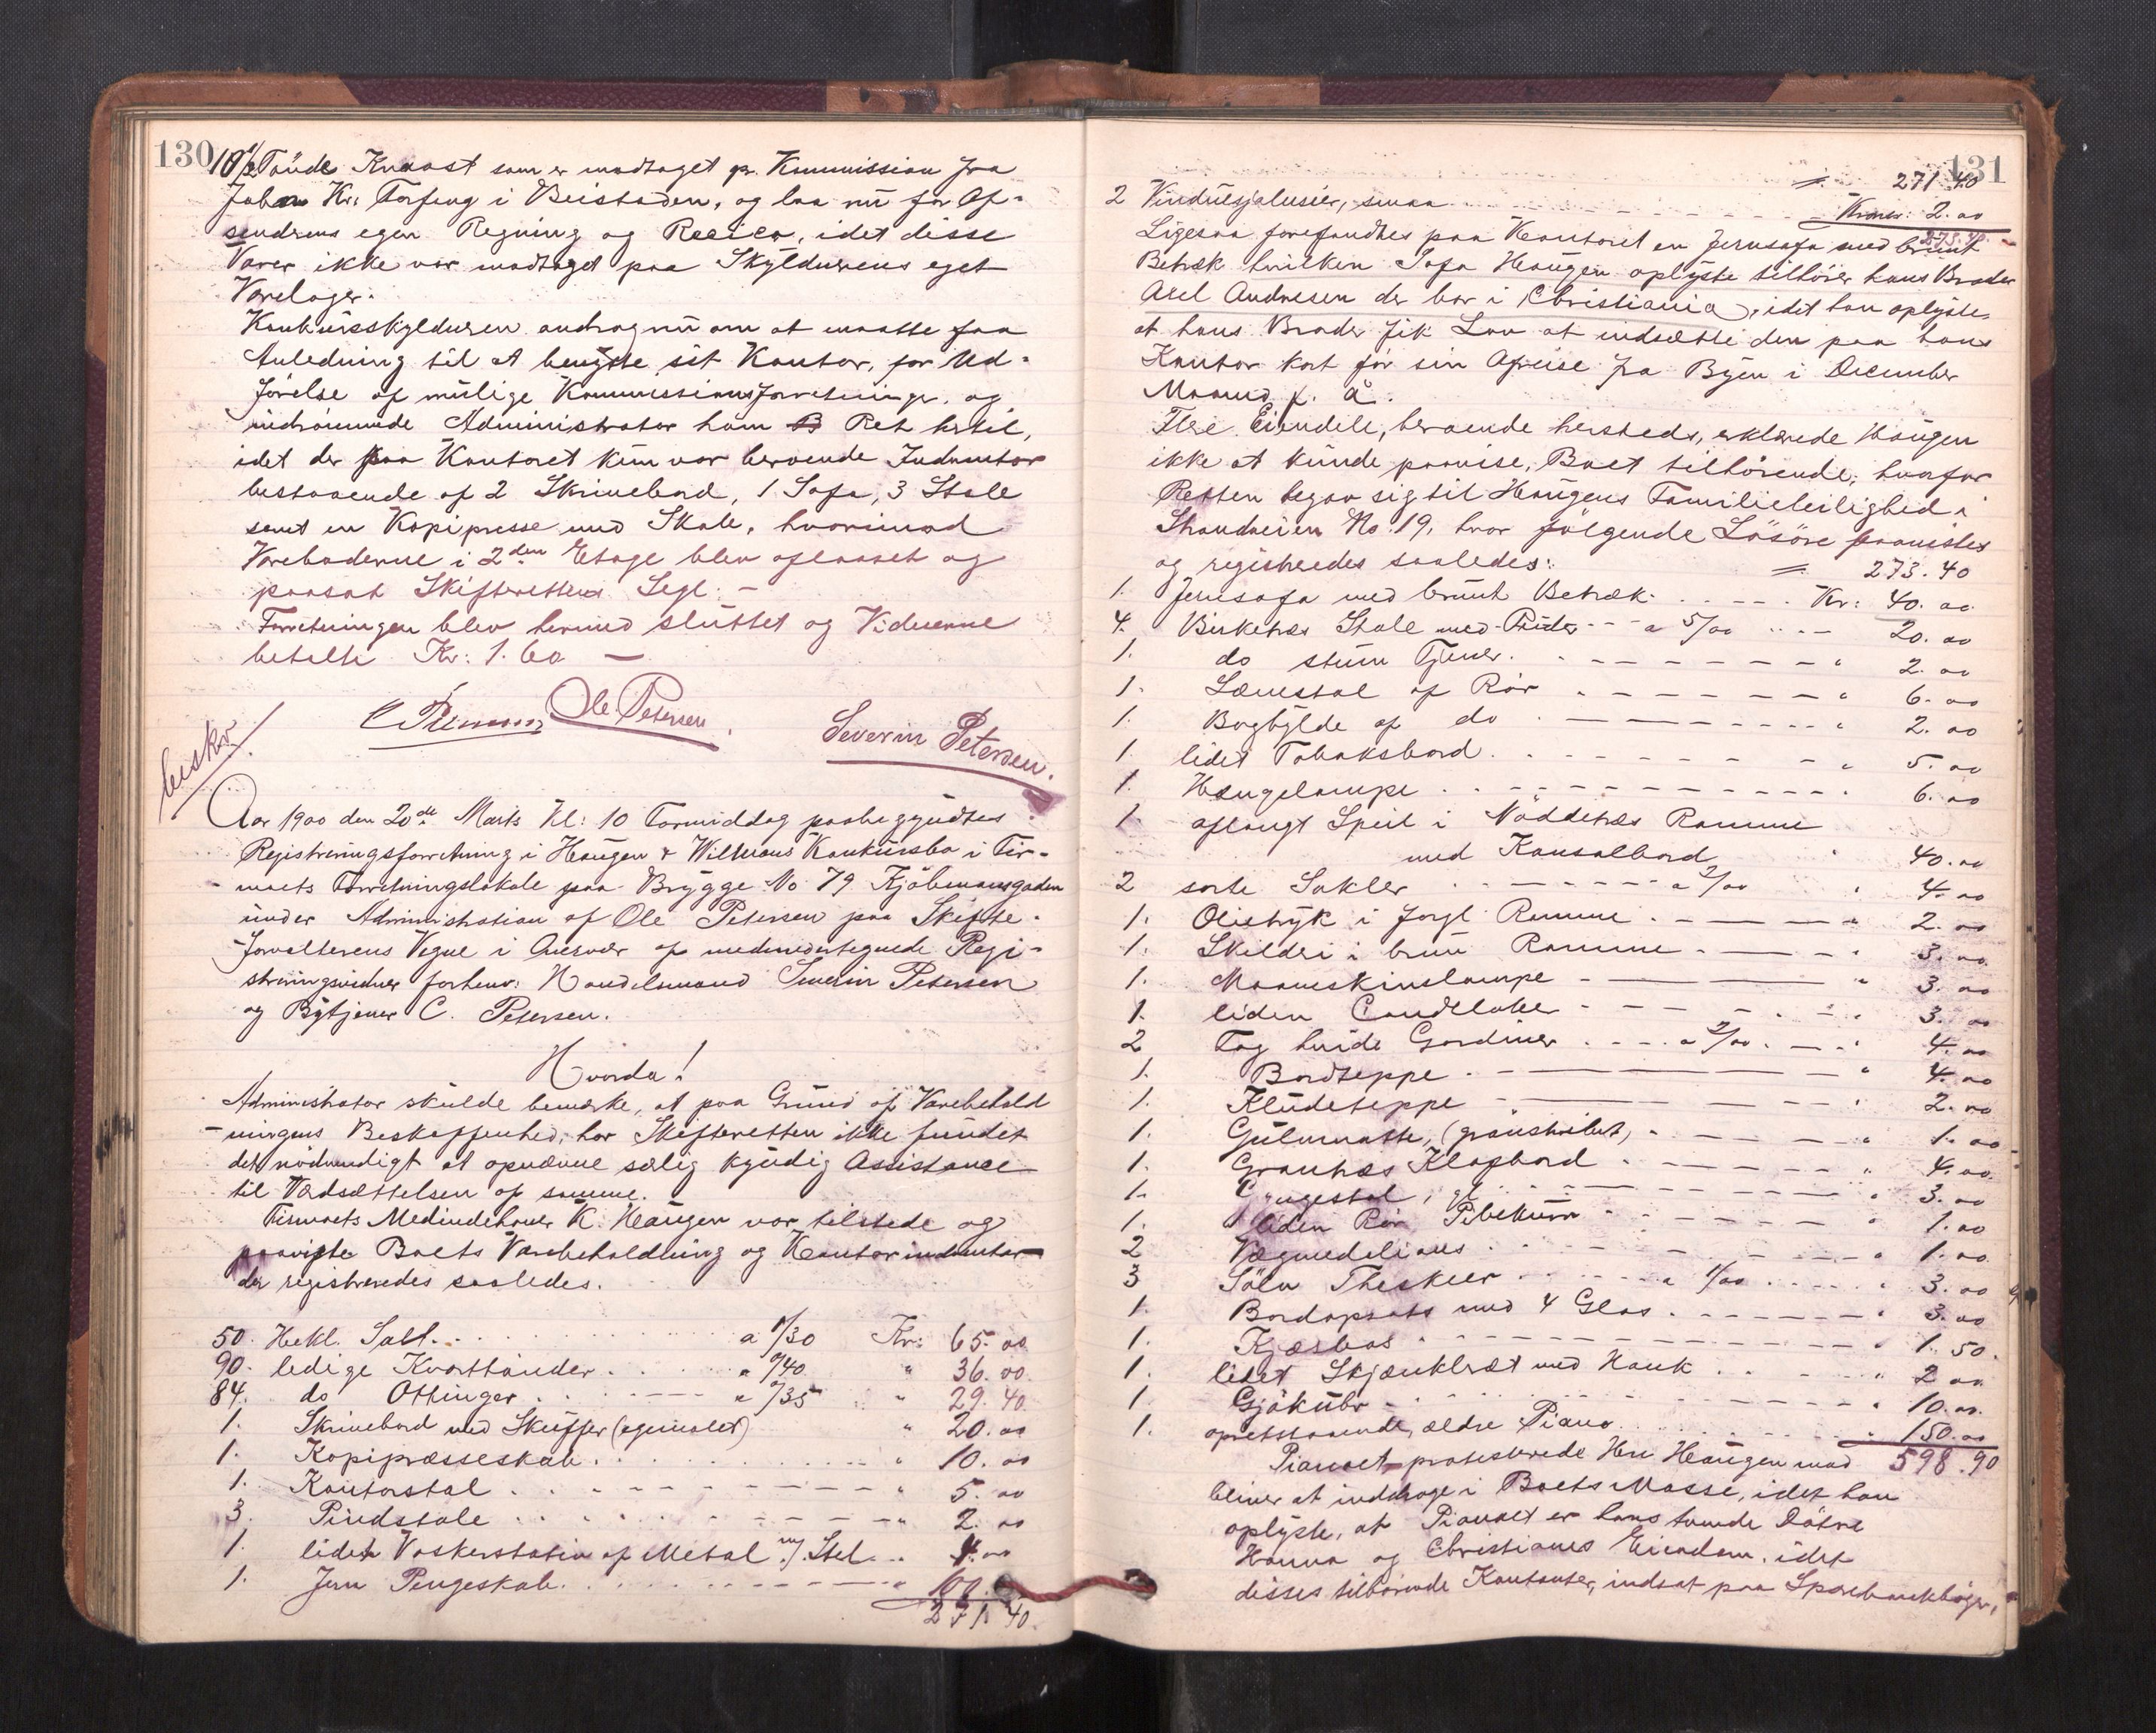 130
10½ Tönde Knaost som er modtaget pr. Kommission fra
Johan Kr. Forfang i Beistaden, og laa nu for Af-
senderens egen Regning og Recico, idet disse
Varer ikke var modtaget paa Skyldnerens eget
Varelager.
Konkursskyldneren androg nu om at maatte faa
Anledning til at benytte sit Kontor, for Ud-
förelse af mulige Kommissionsforretninger, og
indrömmede Administrator ham Ret hertil,
idet der paa Kontoret kun var beroende Indventar
bestaaende af 2 Skrivebord, 1 Sofa, 3 Stole
samt en Kopipresse med Skab, hvorimod
Vareboderne i 2den Etage blev aflaaset og
paasat Skifterettens Segl. –
Forretningen blev hermed sluttet og Vidnerne
betalte Kr: 1.60 –
Ole Petersen.
Severin Petersen.
beskr!
Aar 1900 den 20de Marts Kl: 10 Formiddag paabegyndtes
Registreringsforretning i Haugen & Wilmans Konkursbo i Fir-
maets Forretningslokale paa Brygge No 79 Kjöbmansgaden
under Administration af Ole Petersen paa Skifte-
forvalterens Vegne i Overvær af medundertegnede Regi-
streringsvidner forhenv: Handelsmand Severin Petersen
og Bytjener C. Petersen.
Hvorda!
Administrator skulde bemærke, at paa Grund af Varebehold
-ningens Beskaffenhed, har Skifteretten ikke fundet
det nödvendigt at opnævne særlig kyndig Assistance
til Værdsættelsen af samme.
Firmaets Medindehaver K. Haugen var tilstede og
paaviste Boets Varebeholdning og Kontorindventar
der registreredes saaledes.
50. Hekl. Salt. a 1/30 Kr: 65.00
90. ledige Kvarttönder. " 0/40 " 36.00.
84. do Ottinger. " 0/35 " 29.40.
1. Skrivebord med Skuffer (egemalet) " 20.00
1. Kopipræsseskab. " 10.00
1. Kontorstol. " 5.00
3. Pindstole. " 2.00
1. lidet Vaskerstativ af Metal m/ Stel. " 4.00
1. Jern Pengeskab. " 100.
271.40.
131
= 271.40
2 Vinduesjalusier, smaa Kroner: 2.00
273.40.
Ligesaa forefandtes paa Kontoret en Jernsofa med brunt
Betræk hvilken Sofa Haugen oplyste tilhörer hans Broder
Axel Andresen der bor i Christiania, idet han oplyste,
at hans Broder fik Lov at indsætte den paa hans
Kontor kort för sin Afreise fra Byen i December
Maaned f. å.
Flere Eiendele, beroende hersteds, erklærede Haugen
ikke at kunde paavise, Boet tilhörende, hvorfor
Retten begav sig til Haugens Familieleilighed i
Strandveien No. 19, hvor fölgende Lösöre paavistes
og registreredes saaledes:
= 273.40
1. Jernsofa med brunt Betræk. Kr: 40.00
4. Birketræs Stole med Puder a 5/00 20.00
1. do stum Tjener. " 2.00
1. Lænestol af Rör " 6.00
1. Boghylde af do " 2.00
1. lidet Tobaksbord. " 5.00
1. Hængelampe. " 6.00
1. aflangt Speil i Nöddetræs Ramme
med Konsolbord " 40.00
2 sorte Sokler a 2/00 " 4.00
1. Olietryk i forgl Ramme. " 2.00
1. Skilderi i brun Ramme. " 3.00.
1. Maaneskinslampe " 3.00
1. liden Candelaber " 3.00
2 Fag hvide Gardiner a 2/00. " 4.00
1. Bordteppe. " 4.00
1. Kludeteppe " 2.00
1. Gulvmatte, (grönstribet) " 1.00
1. Grantræs Klapbord. " 4.00.
1. Gyngestol, gl. " 3.00
1. liden Rör Pibekurv " 1.00
2 Vægmedelions. " 1.00.
3 Sölv Theskeer a 1/00 " 3.00
1. Bordopsats med 4 Glas. " 3.00
1. Kjæsbas " 1.50.
1. lidet Skjænkbræt med Hank " 2.00
1. Gjökuhr " 10.00.
1. opretstaaende, ældre Piano " 150.00
Pianoet protesterede Hrr Haugen mod 598.90
bliver at inddrage i Boets Masse, idet han
oplyste, at Pianoet er hans tvende Dötre
Hanna og Christianes Eiendom, idet
disses tilhörende Kontanter, indsat paa Sparebankböger,